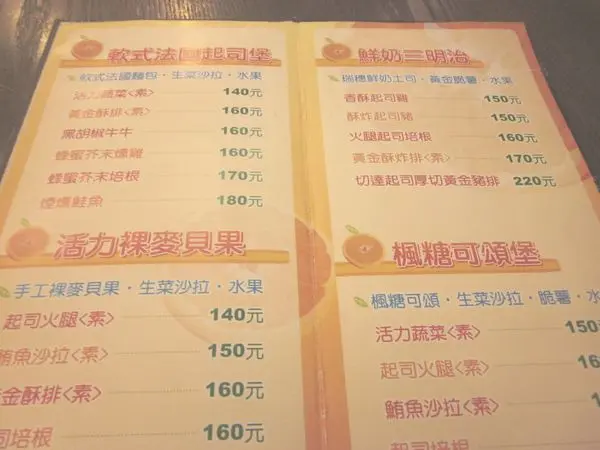 軟式法國起司堡
軟式法國麵包·生菜沙拉·水果
活力蔬菜<素> 140元
黃金酥排<素> 160元
黑胡椒牛牛 160元
蜂蜜芥末燻雞 160元
蜂蜜芥末培根 170元
煙燻鮭魚 180元
活力裸麥貝果
手工裸麥貝果·生菜沙拉·水果
起司火腿<素> 140元
鮪魚沙拉<素> 150元
金酥排<素> 160元
司培根 160元
鮮奶三明治
瑞穗鮮奶土司·黃金脆薯·水果
香酥起司雞 150元
酥炸起司豬 150元
火腿起司培根 160元
黃金酥炸排<素> 170元
切達起司厚切黃金豬排 220元
楓糖可頌堡
楓糖可頌·生菜沙拉·脆薯·水
活力蔬菜<素> 150
起司火腿<素> 16
鮪魚沙拉<素>
起司培根